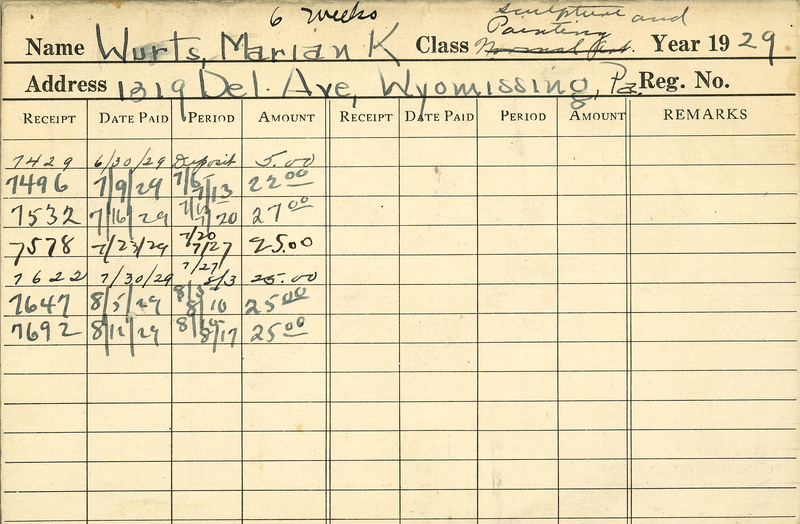 6 weeks
Sculpture and
Painting
Name Wurts, Marian K Class Normal Year 1929
Address 1319 Del. Ave, Wyomissing, Pa. Reg. No.
RECEIPT DATE PAID PERIOD AMOUNT RECEIPT DATE PAID PERIOD AMOUNT REMARKS
7429 6/30/29 Deposit 5.00
7496 7/9/29 7/13 22.00
7532 7/16/29 7/13 7/20 27.00
7578 7/23/29 7/20 7/27 25.00
7622 7/30/29 7/27 8/3 25.00
7647 8/5/29 8/3 8/10 25.00
7692 8/12/29 8/10 8/17 25.00